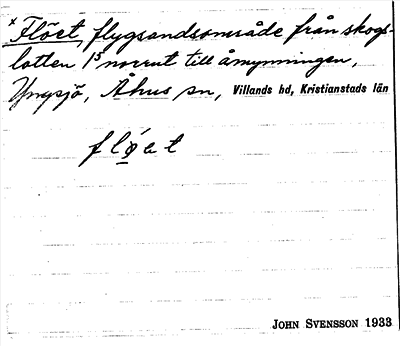 * Flöet, flygsandsområde från skogs-
lotten 15 norrut till åmynningen,
Yngsjö, Åhus sn, Villands hd, Kristianstads län
fløet
JOHN SVENSSON 1933